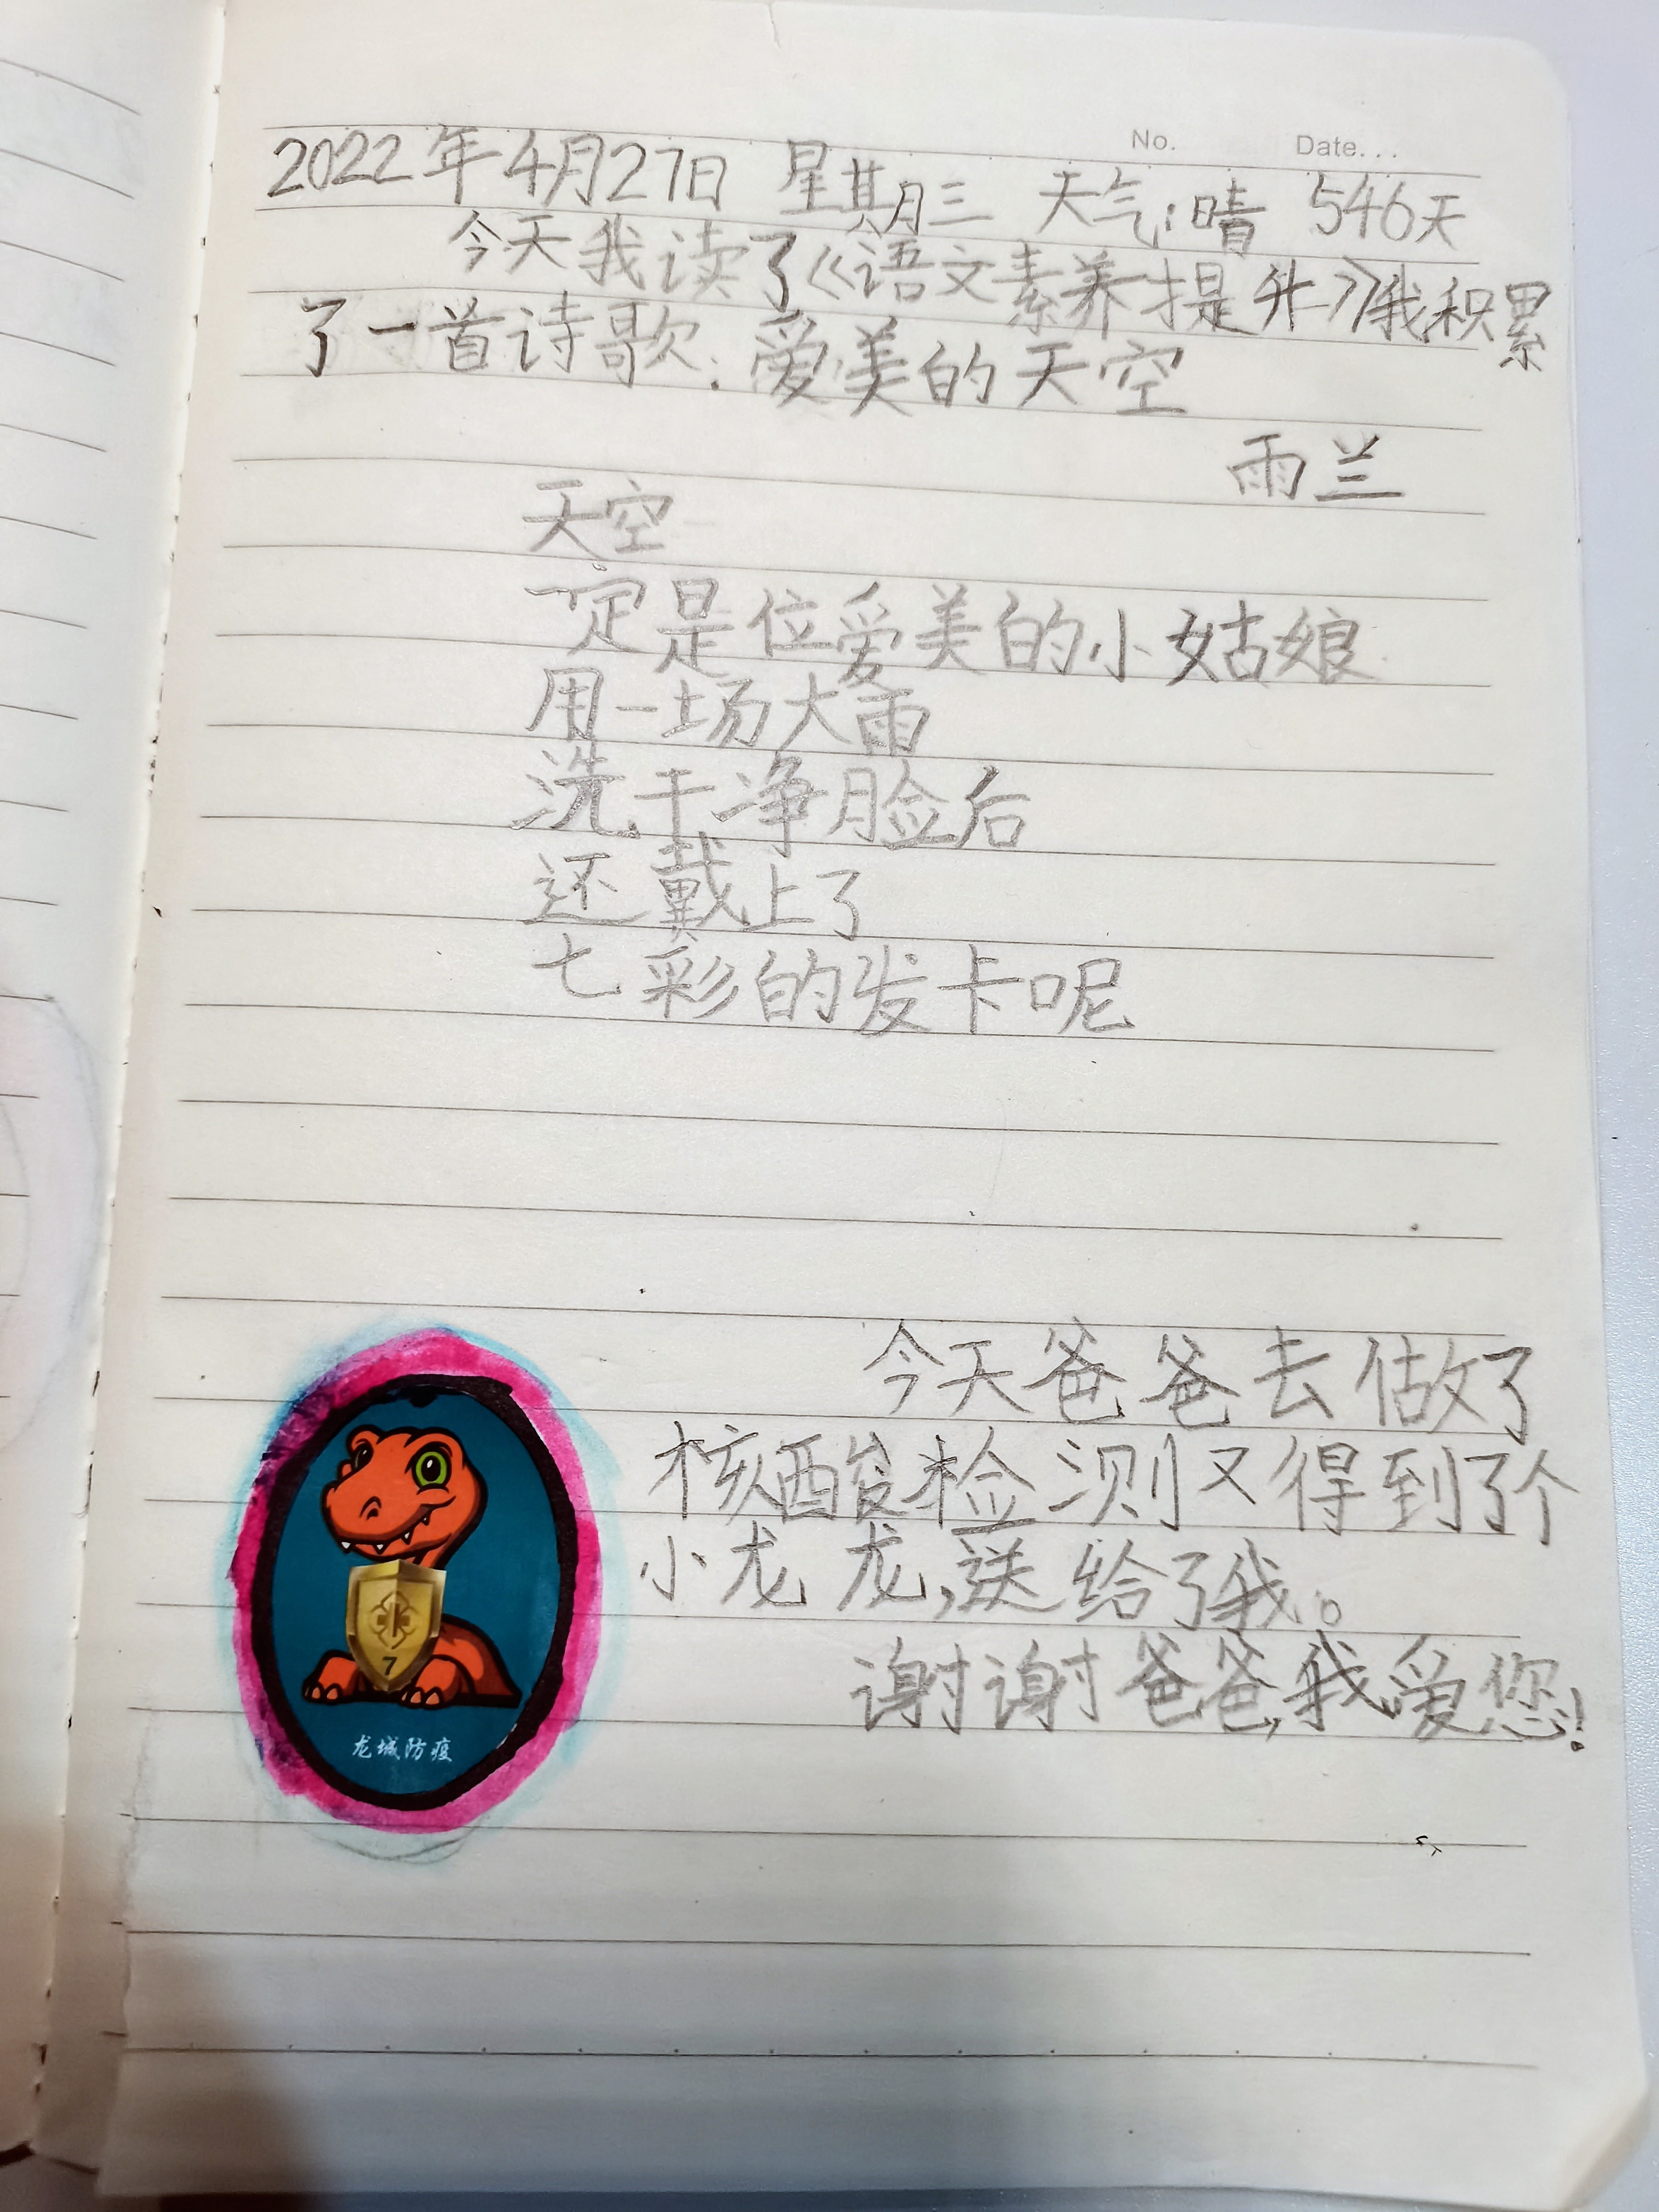 No. Date...
2022年4月27日 星期三 天气:晴 546天
今天我读了《语文素养提升》我积累
了一首诗歌:爱美的天空
雨兰
天空
一定是位爱美的小姑娘
用一场大雨
洗干净脸后
还戴上了
七彩的发卡呢
今天爸爸去做了
核酸检测又得到了个
小龙龙,送给了我。
谢谢爸爸,我爱您!
7
龙城防疫